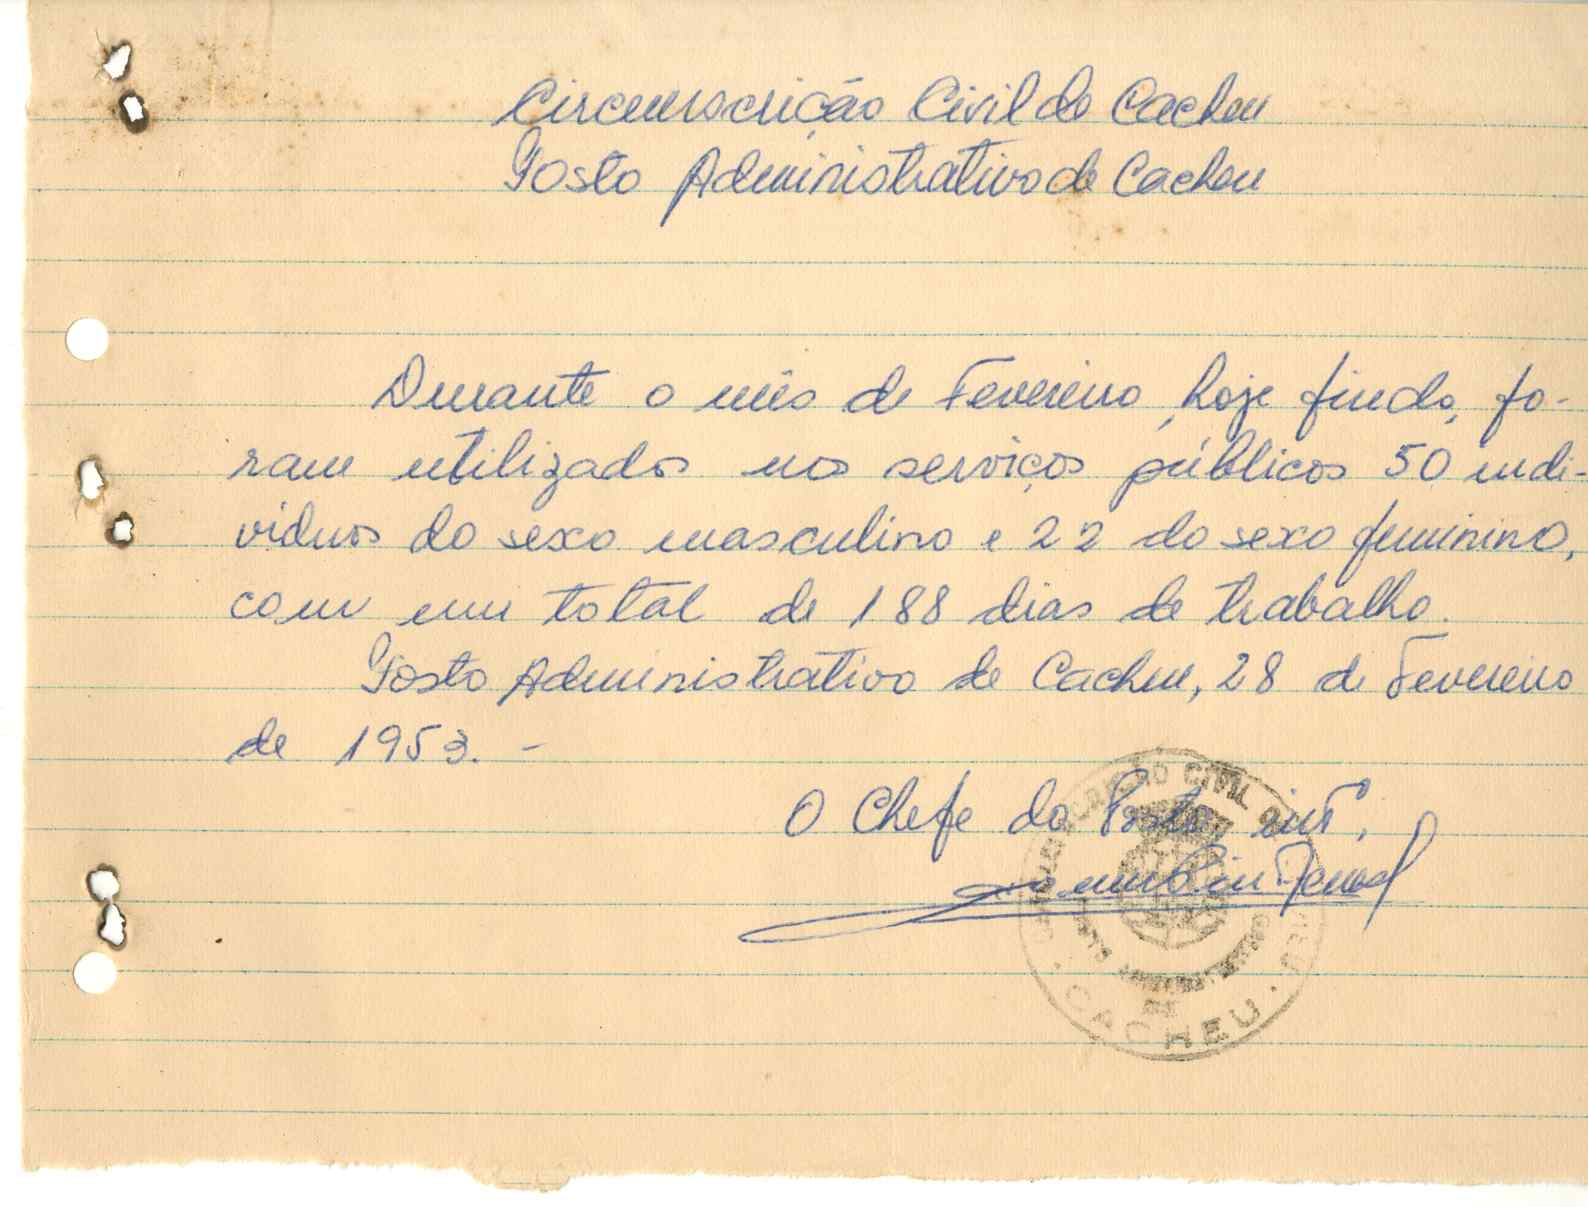 Circunscrição Civil de Cacheu
Posto Administrativo de Cacheu
Durante o mês de Fevereiro, hoje findo, fo-
ram utilizados nos serviços públicos 50 indi-
viduos do sexo masculino e 22 do sexo feminino,
com um total de 188 dias de trabalho.
Posto Administrativo de Cacheu, 28 de Fevereiro
de 1953. -
O Chefe do Posto, intº,
CIRCUNSCRIÇÃO CIVIL DE
POSTO ADMINISTRATIVO
DE
· CACHEU ·